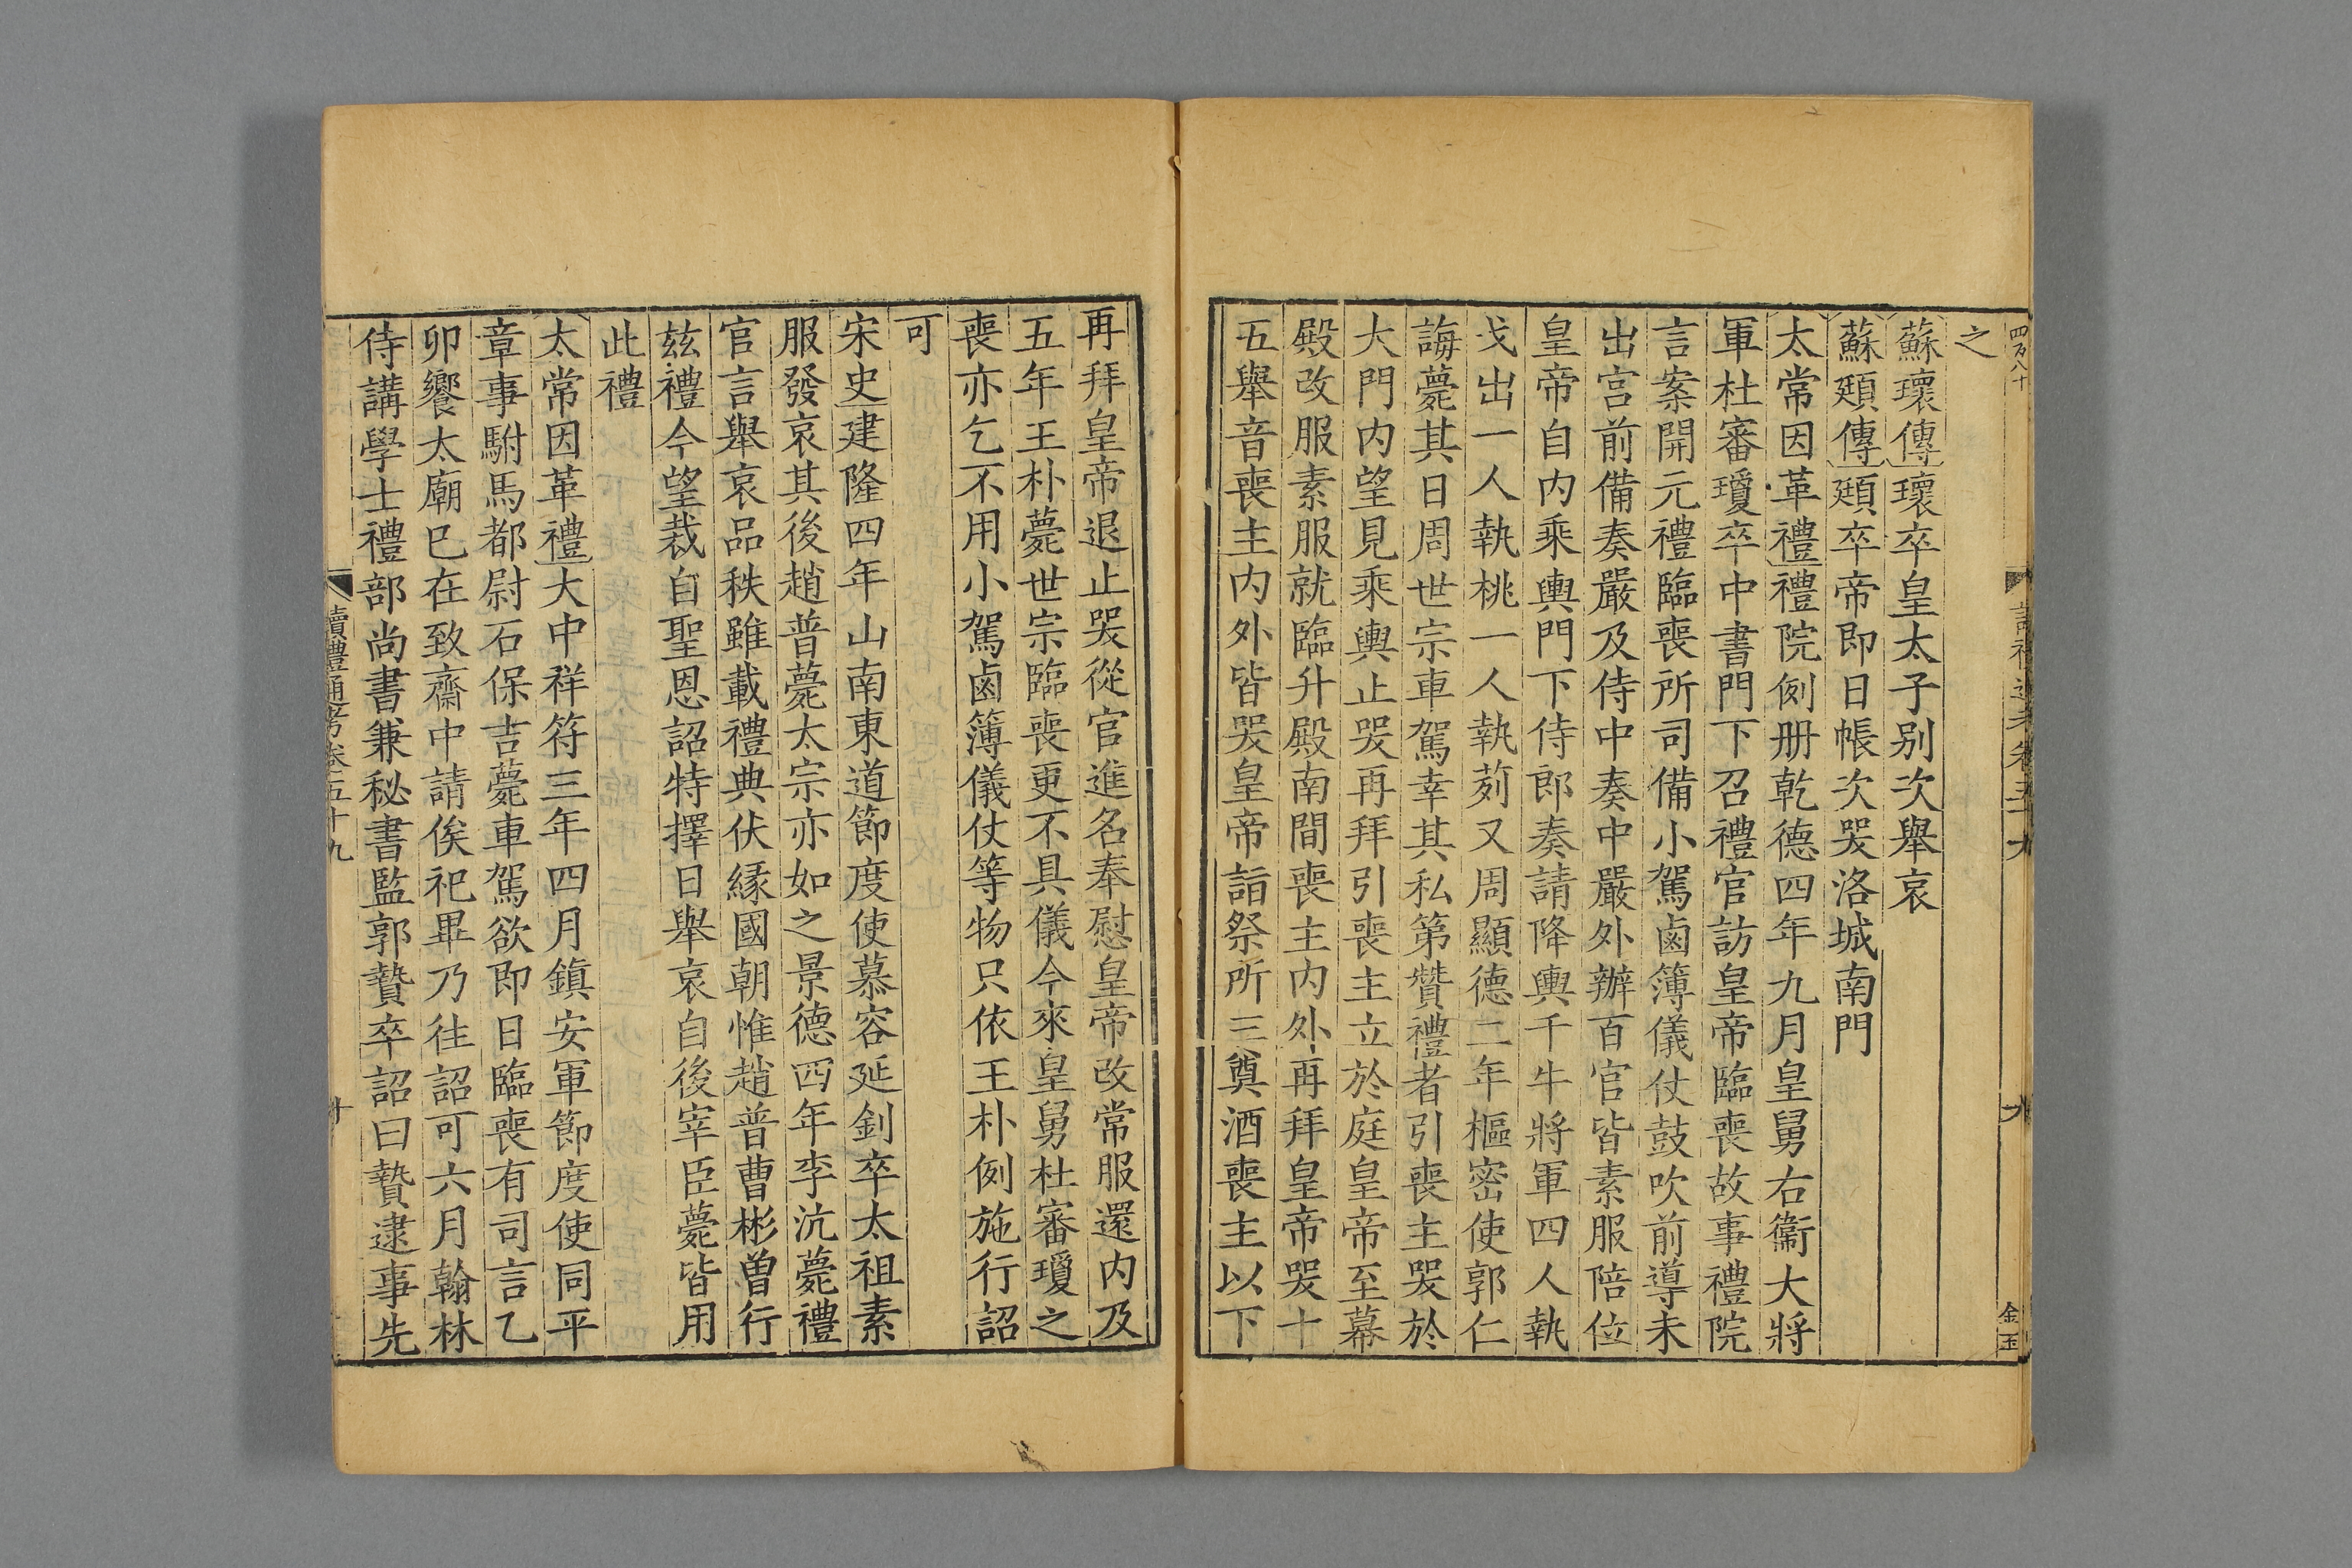 之
蘇瓌傳瓌卒皇太子别次舉哀
蘇頲傳頲卒帝即日帳次哭洛城南門
太常因革禮禮院例册乾德四年九月皇舅右衞大將
軍杜審瓊卒中書門下召禮官訪皇帝臨喪故事禮院
言案開元禮臨喪所司備小駕鹵簿儀仗鼓吹前導未
出宫前備奏嚴及侍中奏中嚴外辦百官皆素服陪位
皇帝自内乘輿門下侍郎奏請降輿千牛將軍四人執
戈出一人執桃一人執茢又周顯德二年樞密使郭仁
誨薨其日周世宗車駕幸其私第贊禮者引喪主哭於
大門内望見乘輿止哭再拜引喪主立於庭皇帝至幕
殿改服素服就臨升殿南間喪主内外再拜皇帝哭十
五舉音喪主内外皆哭皇帝詣祭所三奠酒喪主以下
金玉
再拜皇帝退止哭從官進名奉慰皇帝改常服還内及
五年王朴薨世宗臨喪更不具儀今來皇舅杜審瓊之
喪亦乞不用小駕鹵簿儀仗等物只依王朴例施行詔
可
宋史建隆四年山南東道節度使慕容延釗卒太祖素
服發哀其後趙普薨太宗亦如之景德四年李沆薨禮
官言舉哀品秩雖載禮典伏緣國朝惟趙普曹彬曾行
兹禮今望裁自聖恩詔特擇日舉哀自後宰臣薨皆用
此禮
太常因革禮大中祥符三年四月鎮安軍節度使同平
章事駙馬都尉石保吉薨車駕欲即日臨喪有司言乙
卯饗太廟已在致齋中請俟祀畢乃往詔可六月翰林
侍講學士禮部尚書兼秘書監郭贄卒詔曰贄逮事先
讀禮通考卷五十九